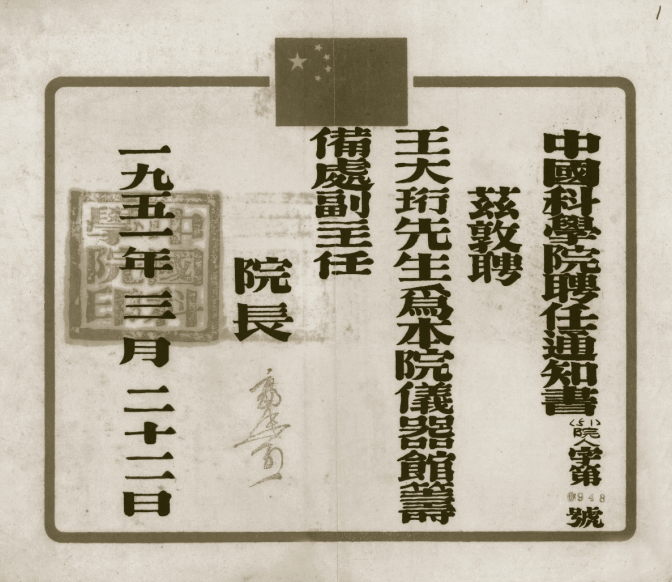 中國科學院聘任通知書(51)院人字第0948號
茲敦聘
王大珩先生爲本院儀器館籌
備處副主任
院長
一九五一年三月二十二日
中國科
學院印
1